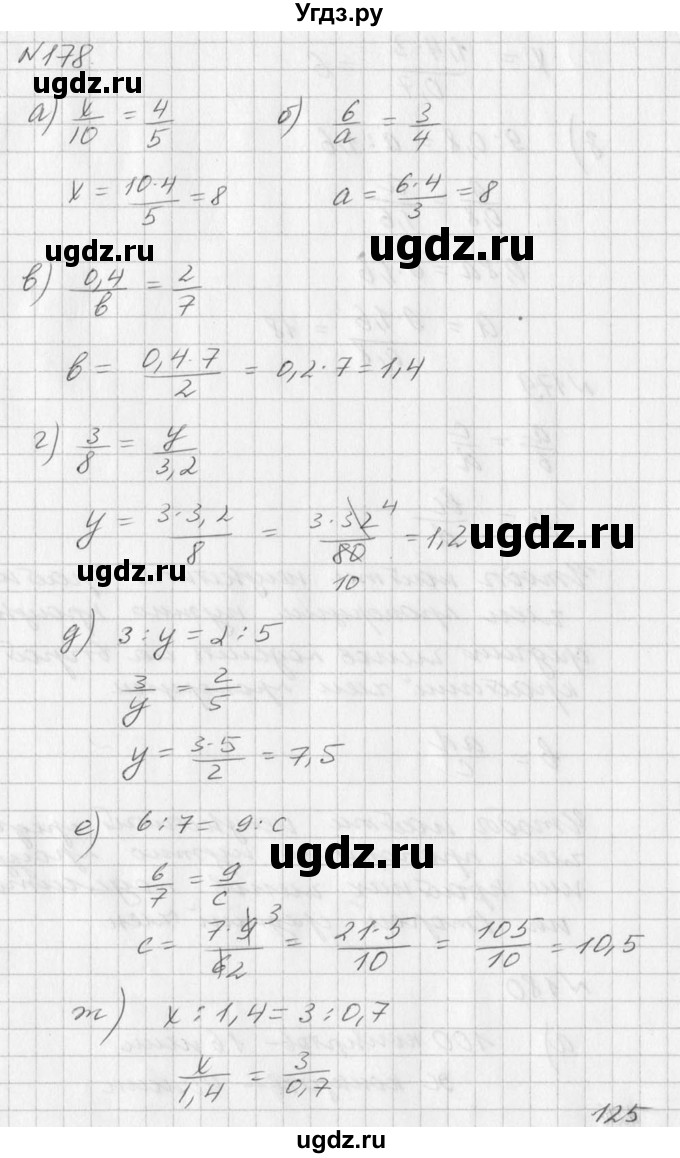 Угдз.ру
№178.
ugdz.ru
ugdz.ru
а) x/10 = 4/5 б) 6/a = 3/4
x = 10·4/5 = 8 a = 6·4/3 = 8
ugdz.ru
ugdz.ru
в) 0,4/в = 2/7
в = 0,4·7/2 = 0,2·7 = 1,4
г) 3/8 = y/3,2
y = 3·3,2/8 = 3·32 4/80 10 = 1,2
ugdz.ru
ugdz.ru
д) 3 : y = 2 : 5
3/y = 2/5
y = 3·5/2 = 7,5
е) 6 : 7 = 9 : c
ugdz.ru
6/7 = 9/c
c = 7·9 3/6 2 = 21·5/10 = 105/10 = 10,5
ugdz.ru
ж) x : 1,4 = 3 : 0,7
x/1,4 = 3/0,7
125
ugdz.ru